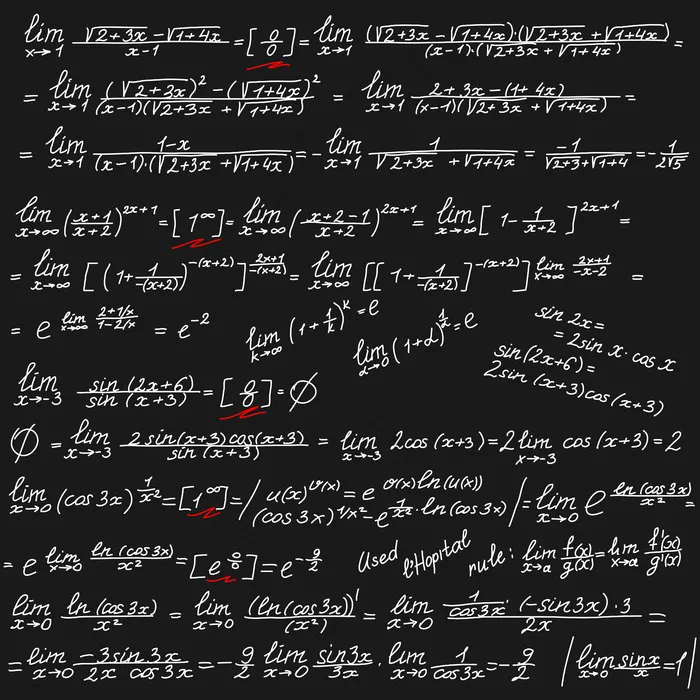 lim x→1 (√2+3x − √1+4x)/(x−1) = [0/0] = lim x→1 ((√2+3x − √1+4x)·(√2+3x + √1+4x))/((x−1)·(√2+3x + √1+4x)) =
= lim x→1 ((√2+3x)² − (√1+4x)²)/((x−1)(√2+3x + √1+4x)) = lim x→1 (2+3x−(1+4x))/((x−1)(√2+3x + √1+4x)) =
= lim x→1 (1−x)/((x−1)·(√2+3x + √1+4x)) = − lim x→1 1/(√2+3x + √1+4x) = −1/(√2+3 + √1+4) = −1/(2√5)
lim x→∞ ((x+1)/(x+2))^(2x+1) = [1^∞] = lim x→∞ ((x+2−1)/(x+2))^(2x+1) = lim x→∞ [1 − 1/(x+2)]^(2x+1) =
= lim x→∞ [(1+1/(−(x+2)))^(−(x+2))]^((2x+1)/(−(x+2))) = lim x→∞ [[1+1/(−(x+2))]^(−(x+2))]^(lim x→∞ (2x+1)/(−x−2)) =
= e^(lim x→∞ (2+1/x)/(−1−2/x)) = e^(−2)
lim k→∞ (1+1/k)^k = e
lim α→0 (1+α)^(1/α) = e
sin 2x =
= 2sin x · cos x
sin(2x+6) =
2sin (x+3)cos(x+3)
lim x→−3 sin (2x+6)/sin (x+3) = [0/0] = ∅
∅ = lim x→−3 (2sin(x+3)cos(x+3))/sin (x+3) = lim x→−3 2cos (x+3) = 2 lim x→−3 cos (x+3) = 2
lim x→0 (cos 3x)^(1/x²) = [1^∞] = / u(x)^(v(x)) = e^(v(x)ln(u(x)))
(cos 3x)^(1/x²) − e^(1/x²·ln(cos 3x)) / = lim x→0 e^(ln(cos 3x)/x²) =
= e^(lim x→0 ln(cos 3x)/x²) = [e^(0/0)] = e^(−9/2)
Used l'Hopital rule: lim x→a f(x)/g(x) = lim x→a f'(x)/g'(x)
lim x→0 ln(cos 3x)/x² = lim x→0 (ln(cos 3x))'/(x²)' = lim x→0 (1/cos 3x · (−sin 3x)·3)/2x =
= lim x→0 (−3sin 3x)/(2x cos 3x) = −9/2 lim x→0 sin3x/3x · lim x→0 1/cos3x = −9/2 | lim x→0 sinx/x = 1 |